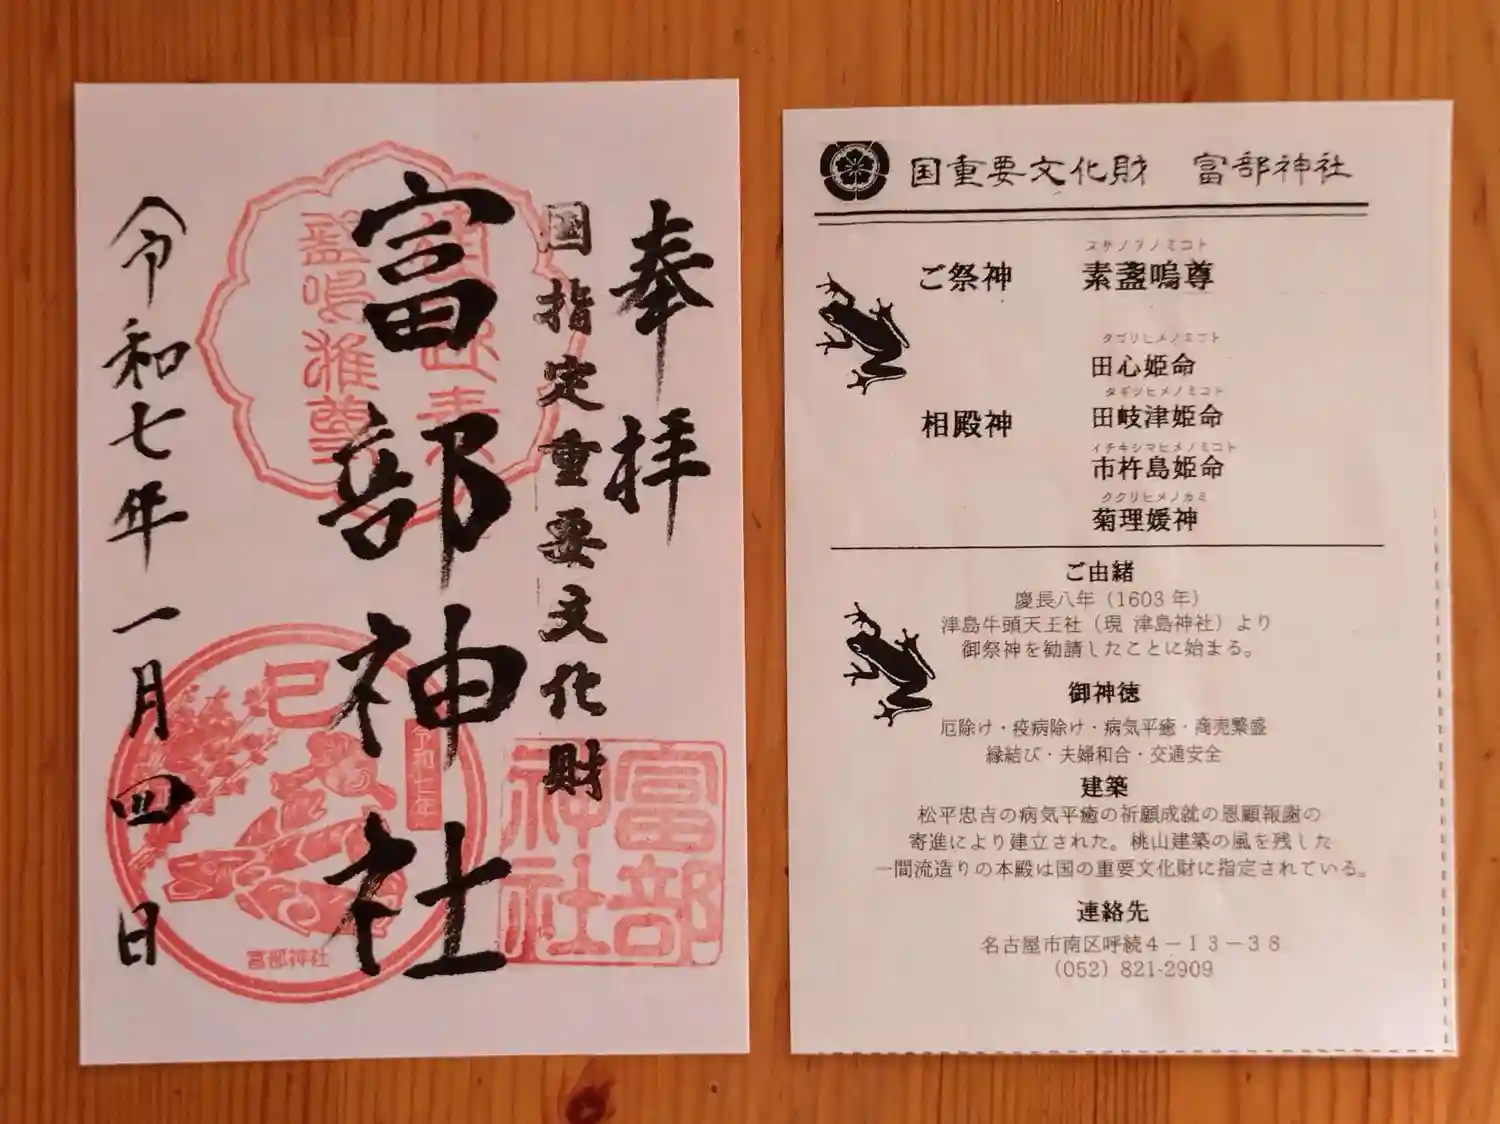 奉拝
国指定重要文化財
富部神社
令和七年一月四日
素盞嗚尊
巳
令和七年
富部神社
富部
神社
国重要文化財 富部神社
スサノヲノミコト
ご祭神 素盞嗚尊
タゴリヒメノミコト
田心姫命
タギツヒメノミコト
田岐津姫命
相殿神
イチキシマヒメノミコト
市杵島姫命
ククリヒメノカミ
菊理媛神
ご由緒
慶長八年（1603 年）
津島牛頭天王社（現 津島神社）より
御祭神を勧請したことに始まる。
御神徳
厄除け・疫病除け・病気平癒・商売繁盛
縁結び・夫婦和合・交通安全
建築
松平忠吉の病気平癒の祈願成就の恩顧報謝の
寄進により建立された。桃山建築の風を残した
一間流造りの本殿は国の重要文化財に指定されている。
連絡先
名古屋市南区呼続４－１３－３８
（052）821-2909